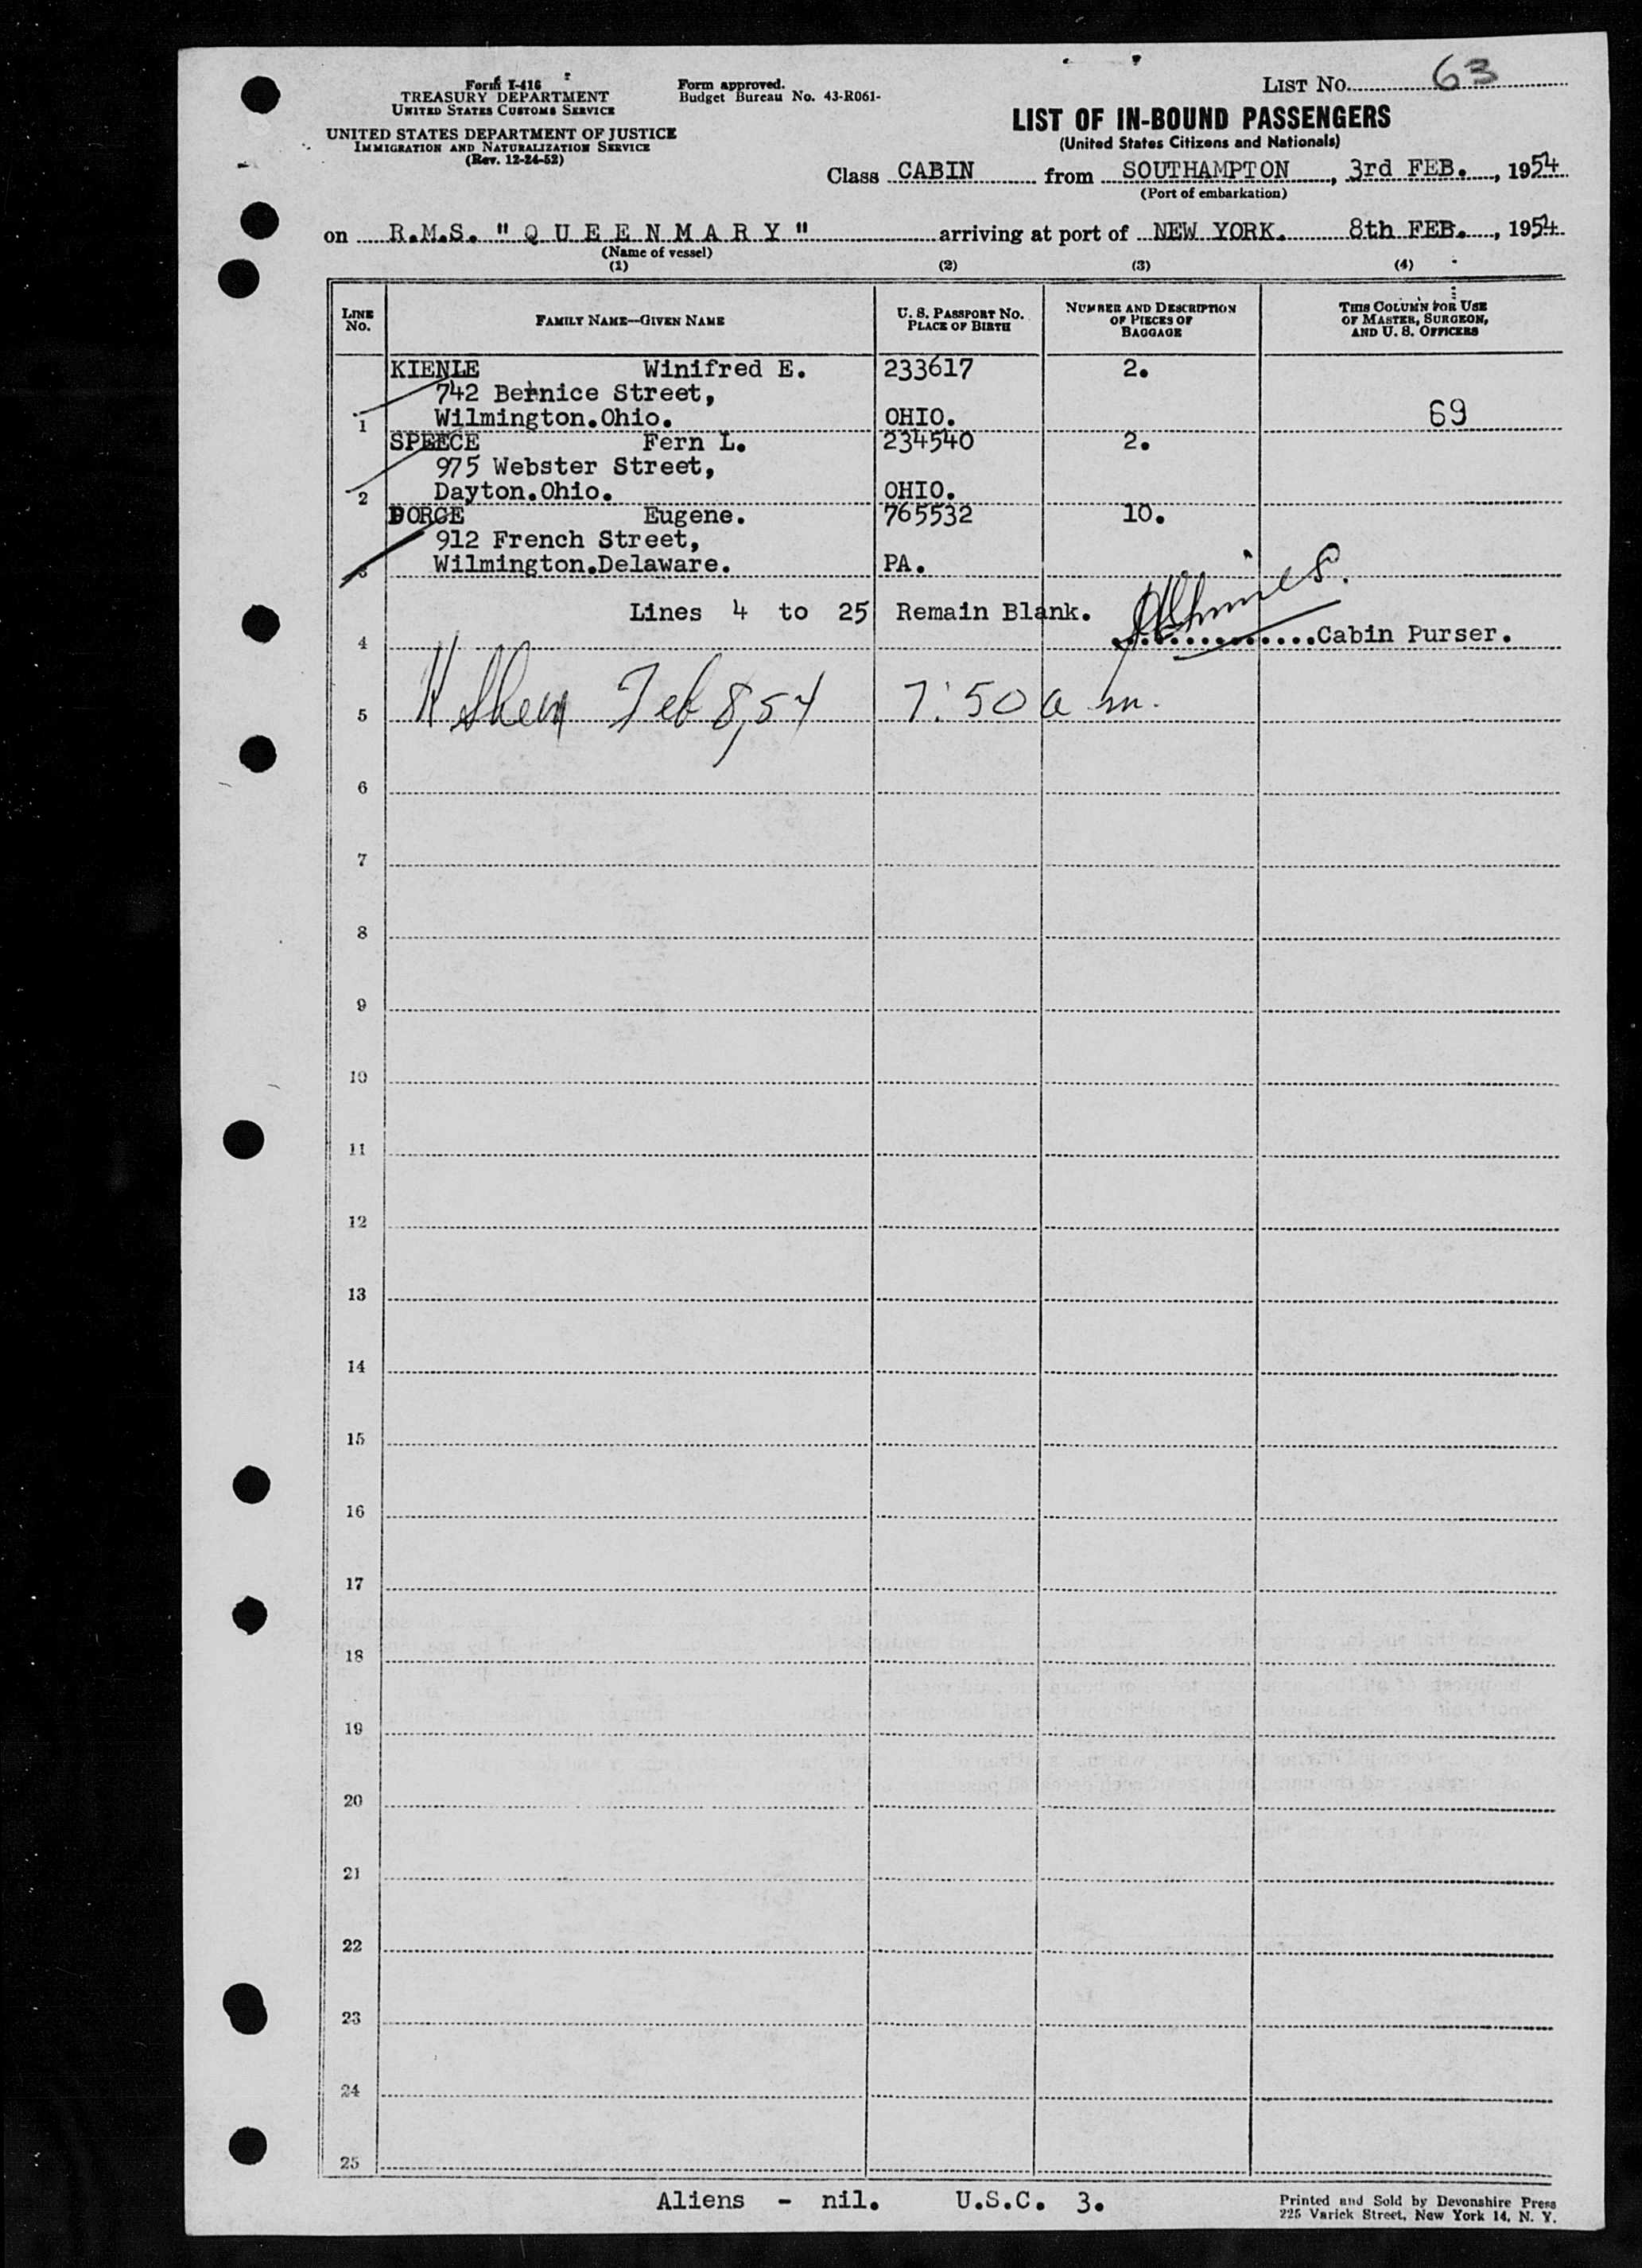 Form I-416
TREASURY DEPARTMENT
UNITED STATES CUSTOMS SERVICE
UNITED STATES DEPARTMENT OF JUSTICE
IMMIGRATION AND NATURALIZATION SERVICE
(Rev. 12-24-52)
Form approved.
Budget Bureau No. 43-R061-
LIST NO. 63
LIST OF IN-BOUND PASSENGERS
(United States Citizens and Nationals)
Class CABIN from SOUTHAMPTON, 3rd FEB., 1954
(Port of embarkation)
on R.M.S. "QUEEN MARY" arriving at port of NEW YORK. 8th FEB., 1954
(Name of vessel)
(1) (2) (3) (4)
LINE No. FAMILY NAME—GIVEN NAME U. S. PASSPORT NO. PLACE OF BIRTH NUMBER AND DESCRIPTION OF PIECES OF BAGGAGE THIS COLUMN FOR USE OF MASTER, SURGEON, AND U. S. OFFICERS
KIENLE Winifred E. 233617 2.
742 Bernice Street,
1 Wilmington.Ohio. OHIO. 69
SPEECE Fern L. 234540 2.
975 Webster Street,
2 Dayton.Ohio. OHIO.
DORGE Eugene. 765532 10.
912 French Street,
3 Wilmington.Delaware. PA.
Lines 4 to 25 Remain Blank.
4 Cabin Purser.
5 Feb 8, 54 7:50 a m.
6
7
8
9
10
11
12
13
14
15
16
17
18
19
20
21
22
23
24
25
Aliens - nil. U.S.C. 3.
Printed and Sold by Devonshire Press
225 Varick Street, New York 14, N. Y.